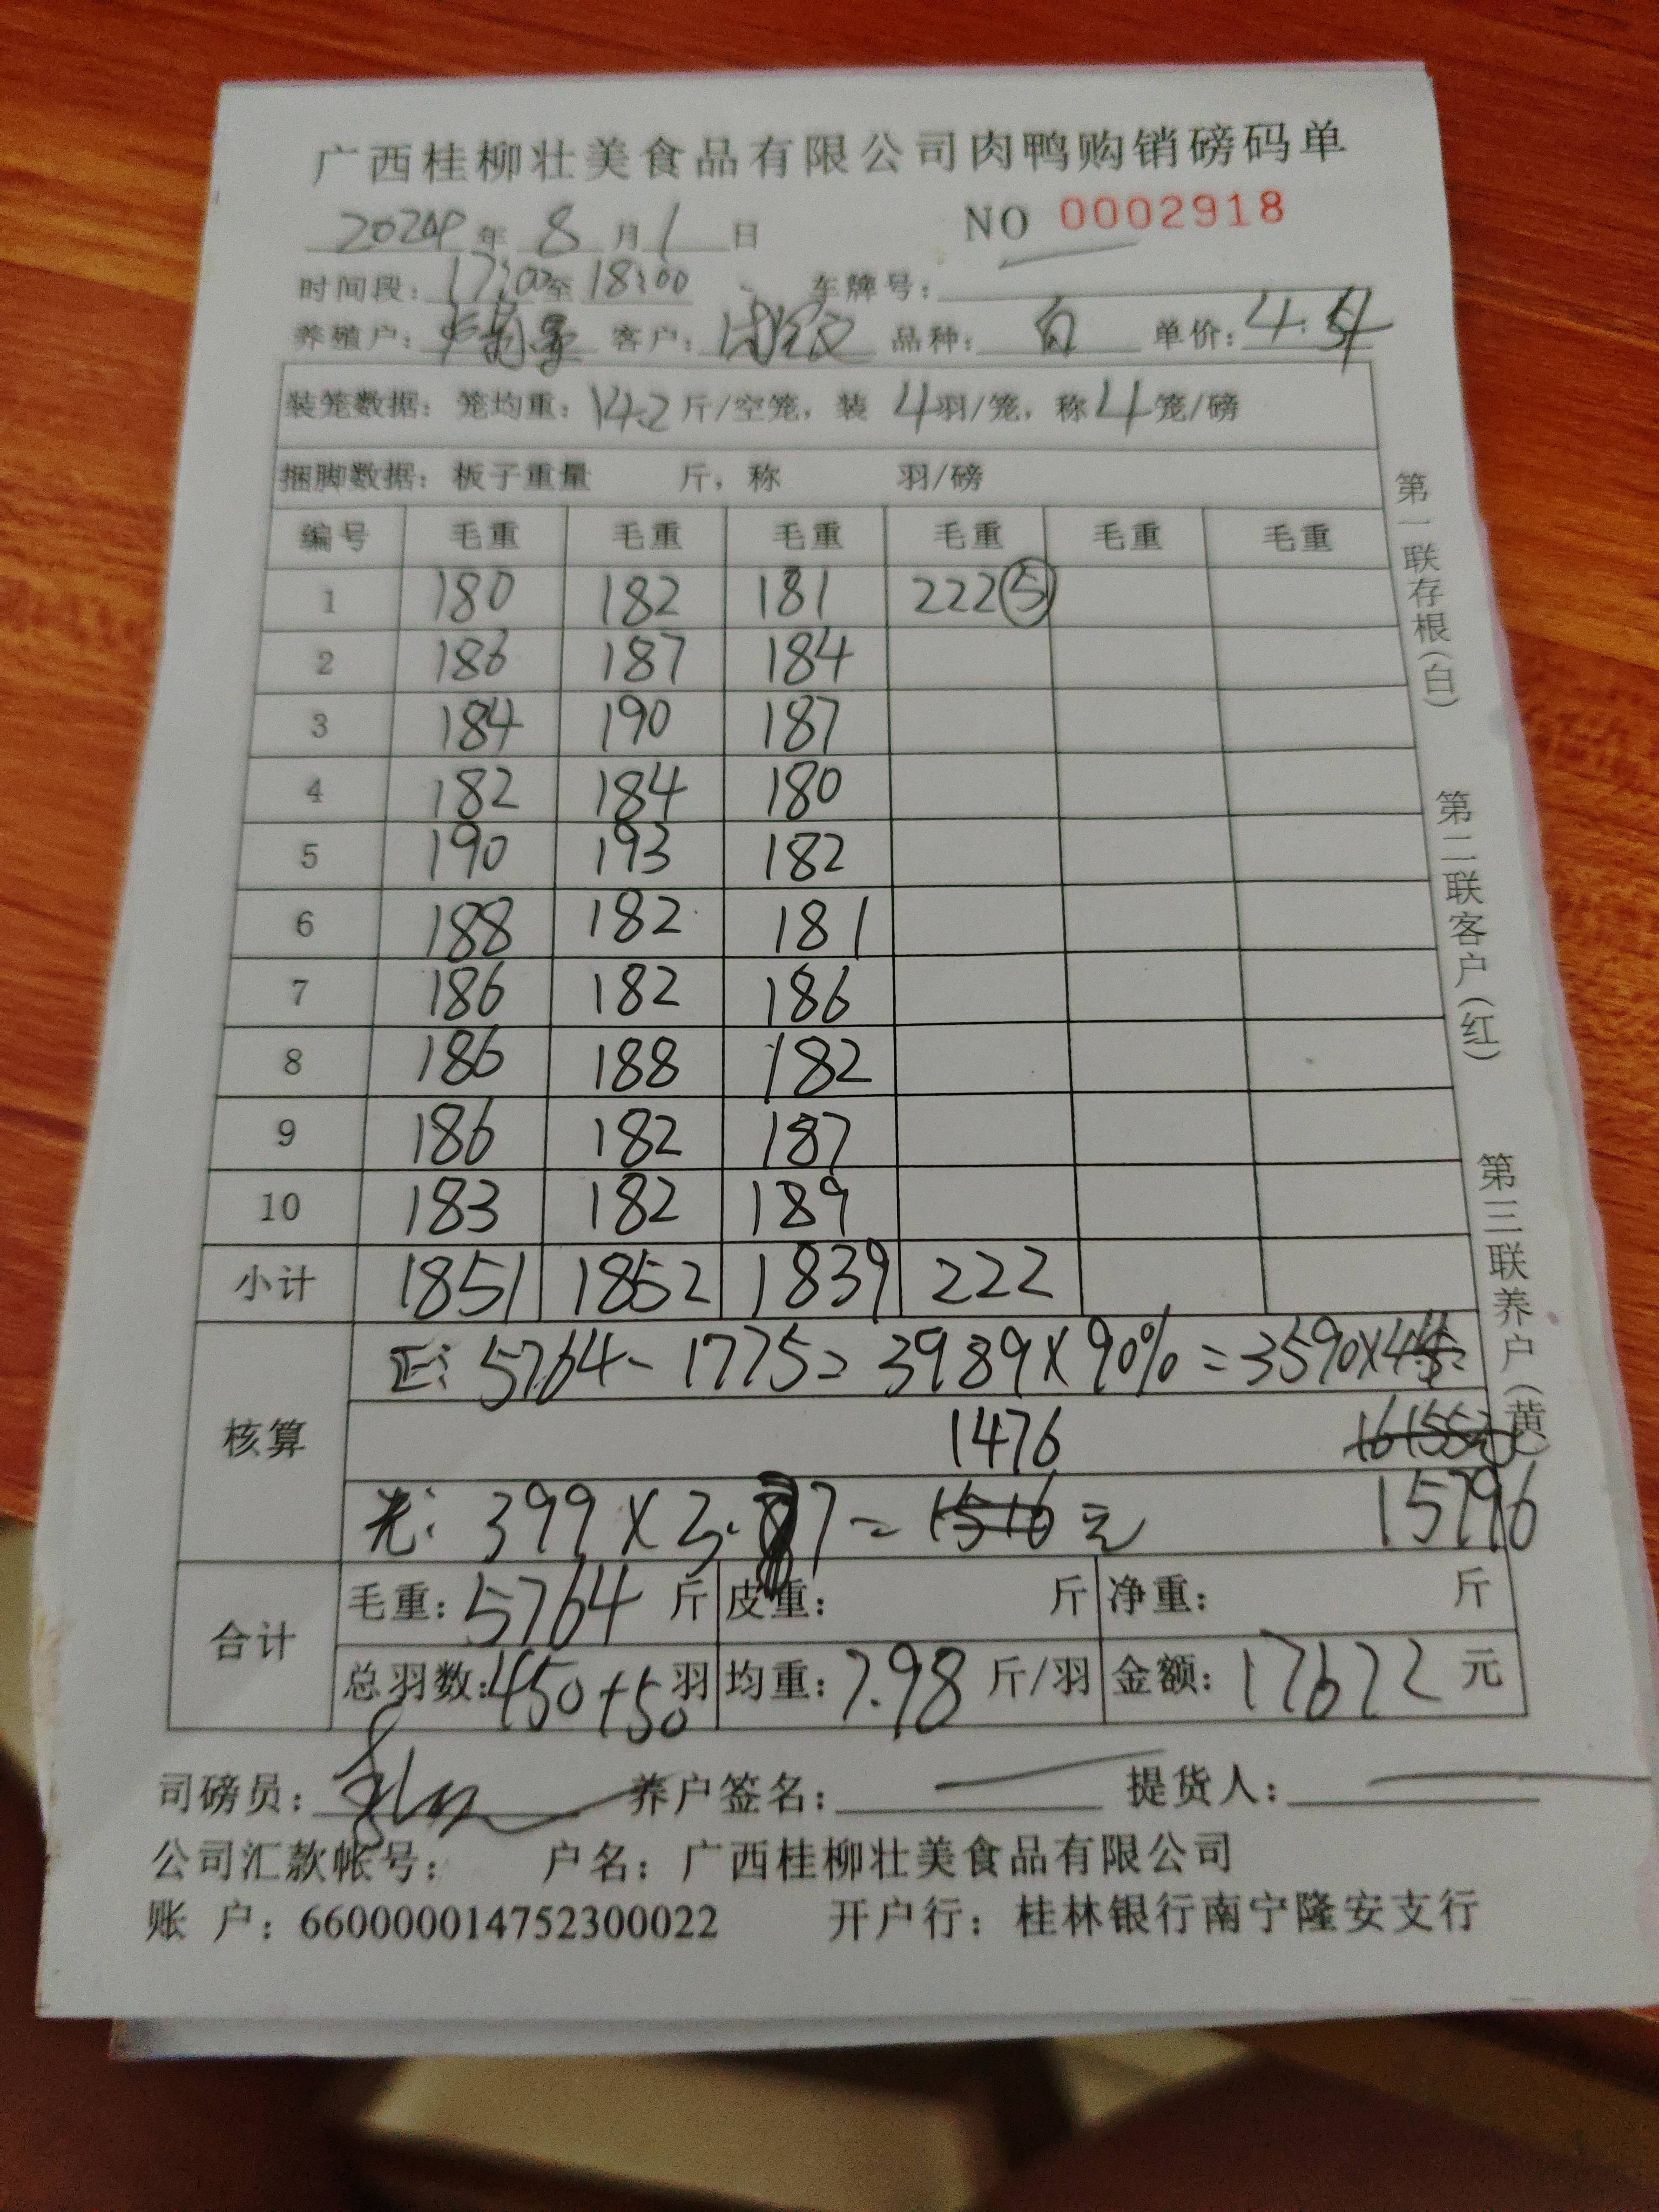 广西桂柳壮美食品有限公司肉鸭购销磅码单
2024年 8月1日 NO 0002918
时间段：17:00至18:00 车牌号：
养殖户： 客户： 品种：白 单价：4.
装笼数据：笼均重：14.2斤/空笼，装 4羽/笼，称4笼/磅
捆脚数据：板子重量 斤，称 羽/磅
编号 毛重 毛重 毛重 毛重 毛重 毛重
1 180 182 181 222⑤
2 186 187 184
3 184 190 187
4 182 184 180
5 190 193 182
6 188 182 181
7 186 182 186
8 186 188 182
9 186 182 187
10 183 182 189
小计 1851 1852 1839 222
核算 正：5764-1775=3989×90%=3590×4.
1476
光：399×3. 7=1516元 15796
合计 毛重：5764斤 皮重： 斤 净重： 斤
总羽数：450+50羽 均重：7.98斤/羽 金额：17672元
司磅员： 养户签名： 提货人：
公司汇款帐号： 户名：广西桂柳壮美食品有限公司
账 户：660000014752300022 开户行：桂林银行南宁隆安支行
第一联存根（白）
第二联客户（红）
第三联养户（黄）